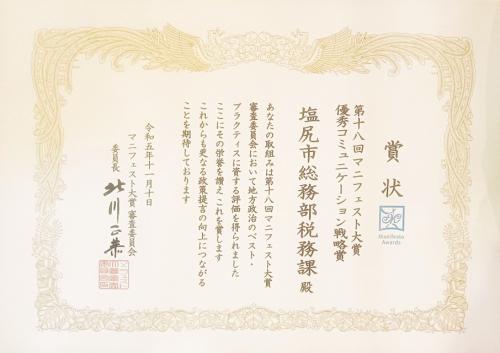 賞状
Manifesto
Awards
第十八回マニフェスト大賞
優秀コミュニケーション戦略賞
塩尻市総務部税務課 殿
あなたの取組みは第十八回マニフェスト大賞
審査委員会において地方政治のベスト・
プラクティスに資する評価を得られました
ここにその栄誉を讃えこれを賞します
これからも更なる政策提言の向上につながる
ことを期待しております
令和五年十一月十日
マニフェスト大賞 審査委員会
委員長 北川正恭